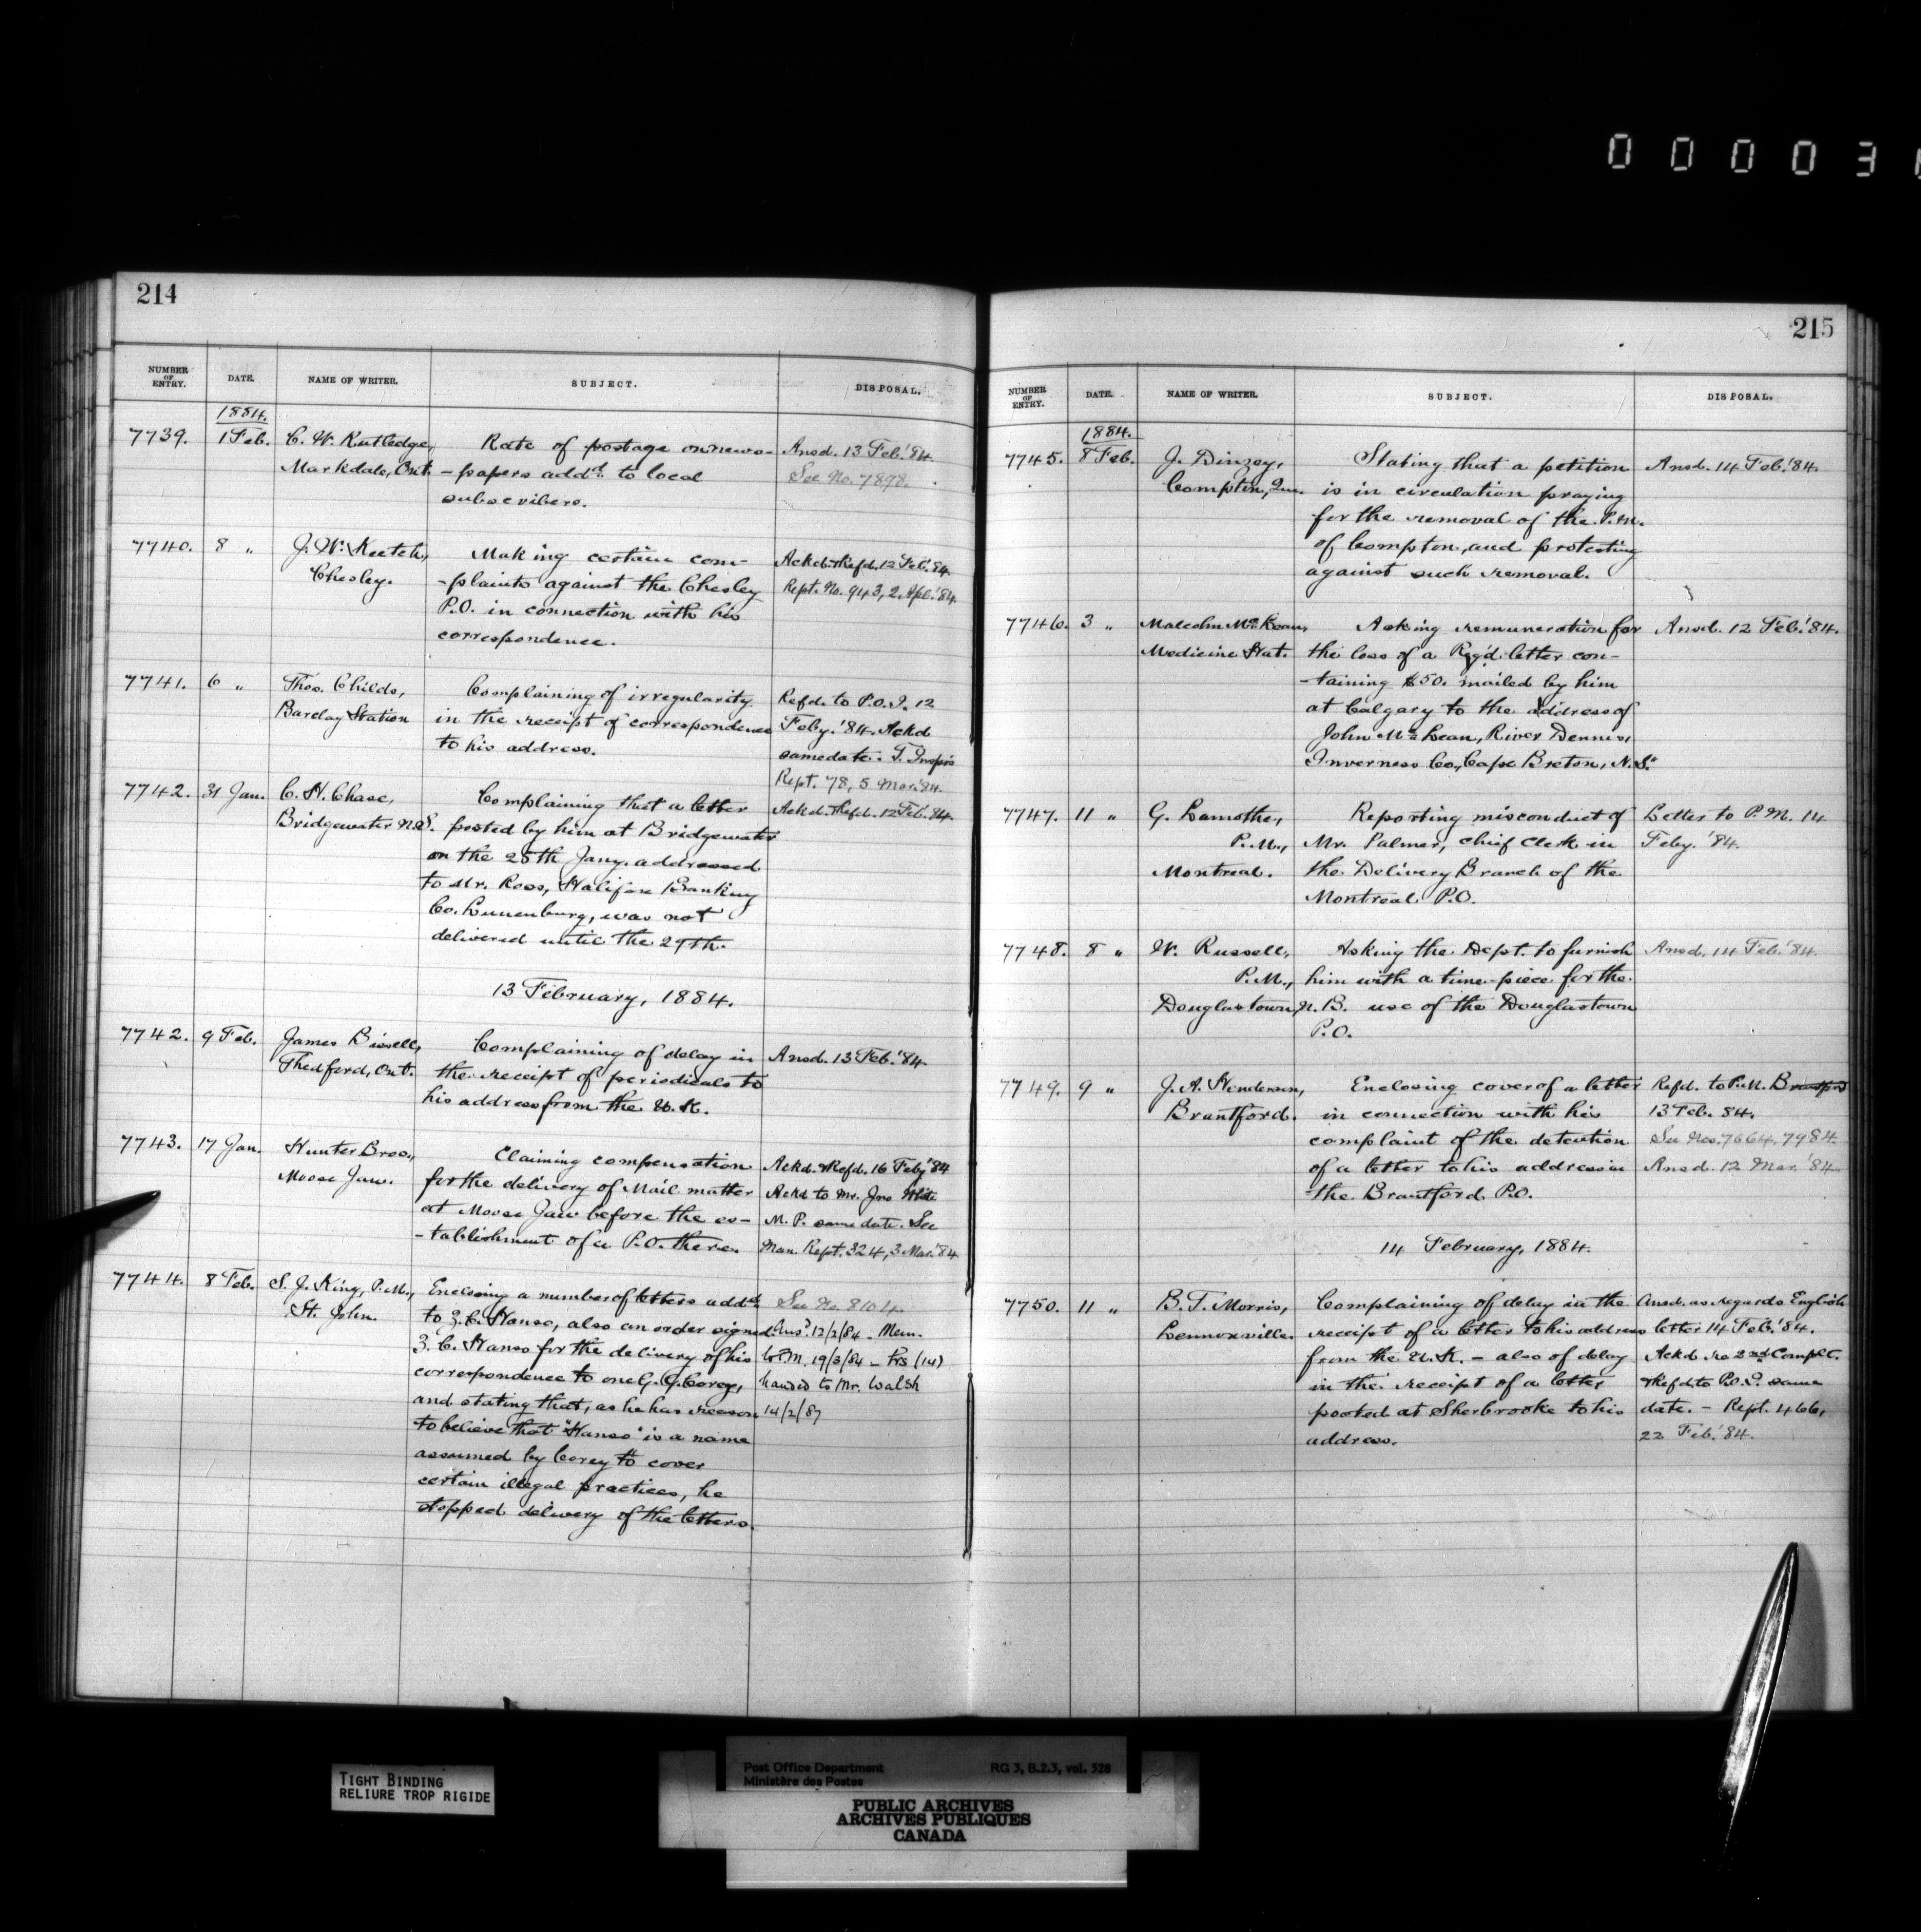 0 0 0 0 3
214
NUMBER OF ENTRY. DATE. NAME OF WRITER. SUBJECT. DISPOSAL.
1884.
7739. 1 Feb. C. W. Rutledge, Rate of postage on news- Ansd. 13 Feb. '84.
Markdale, Ont. -papers addd. to local See No. 7898.
subscribers.
7740. 8 " J. W. Keetch, Making certain com- Ackd. & Refd. 12 Feb. 84
Chesley. -plaints against the Chesley Rept. No. 943, 2 Apl. '84
P.O. in connection with his
correspondence.
7741. 6 " Thos. Childs, Complaining of irregularity Refd. to P.O.I. 12
Barclay Station in the receipt of correspondence Feby. '84. Ackd
to his address. same date. T. Inspr's
Rept. 78, 5 Mar. '84.
7742. 31 Jan. C. H. Chase, Complaining that a letter Ackd. & Refd. 12 Feb. 84.
Bridgewater N.S. posted by him at Bridgewater
on the 28th Jany. addressed
to Mr. Ross, Halifax Banking
Co. Lunenburg, was not
delivered until the 29th.
13 February, 1884.
7742. 9 Feb. James Bissell, Complaining of delay in Ansd. 13 Feb. '84.
Thedford, Ont. the receipt of periodicals to
his address from the U.K.
7743. 17 Jan. Hunter Bros., Claiming compensation Ackd. & Refd. 16 Feby '84
Moose Jaw. for the delivery of Mail matter Ackd to Mr. Jno White
at Moose Jaw before the es- M. P. same date. See
-tablishment of a P.O. there. Man. Rept. 324, 3 Mar. '84
7744. 8 Feb. S. J. King, P.M., Enclosing a number of letters addd. See No. 8104.
St. John. to Z. C. Hanso, also an order signed Ansd. 12/2/84 - Mem.
Z. C. Hanso for the delivery of his to P.M. 19/3/84 - Prs (14)
correspondence to one G. G. Corey, handed to Mr. Walsh
and stating that, as he has reason 14/2/87
to believe that "Hanso" is a name
assumed by Corey to cover
certain illegal practices, he
stopped delivery of the letters.
215
NUMBER OF ENTRY. DATE. NAME OF WRITER. SUBJECT. DISPOSAL.
1884.
7745. 8 Feb. J. Dinzey, Stating that a petition Ansd. 14 Feb. '84.
Compton, Que. is in circulation praying
for the removal of the P.M.
of Compton, and protesting
against such removal.
7746. 3 " Malcolm McLean, Asking remuneration for Ansd. 12 Feb. '84.
Medicine Hat. the loss of a Regd. letter con-
-taining $50. mailed by him
at Calgary to the address of
John McLean, River Dennis,
Inverness Co., Cape Breton, N.S.
7747. 11 " G. Lamothe, Reporting misconduct of Letter to P.M. 14
P.M., Mr. Palmer, chief Clerk in Feby. '84.
Montreal. the Delivery Branch of the
Montreal P.O.
7748. 8 " W. Russell, Asking the Dept. to furnish Ansd. 14 Feb. '84.
P.M., him with a time-piece for the
Douglastown, N.B. use of the Douglastown
P.O.
7749. 9 " J. A. Henderson, Enclosing cover of a letter Refd. to P.M. Brantford
Brantford. in connection with his 13 Feb. 84.
complaint of the detention See Nos. 7664, 7984
of a letter to his address in Ansd. 12 Mar. '84.
the Brantford P.O.
14 February, 1884.
7750. 11 " B. T. Morris, Complaining of delay in the Ansd. as regards English
Lennoxville. receipt of a letter to his address letter 14 Feb. '84.
from the U.K. - also of delay Ackd re 2nd Complt.
in the receipt of a letter & Refd to P.O.I. same
posted at Sherbrooke to his date. - Rept. 466,
address. 22 Feb. '84.
TIGHT BINDING
RELIURE TROP RIGIDE
Post Office Department RG 3, B.2.3, vol. 528
Ministère des Postes
PUBLIC ARCHIVES
ARCHIVES PUBLIQUES
CANADA